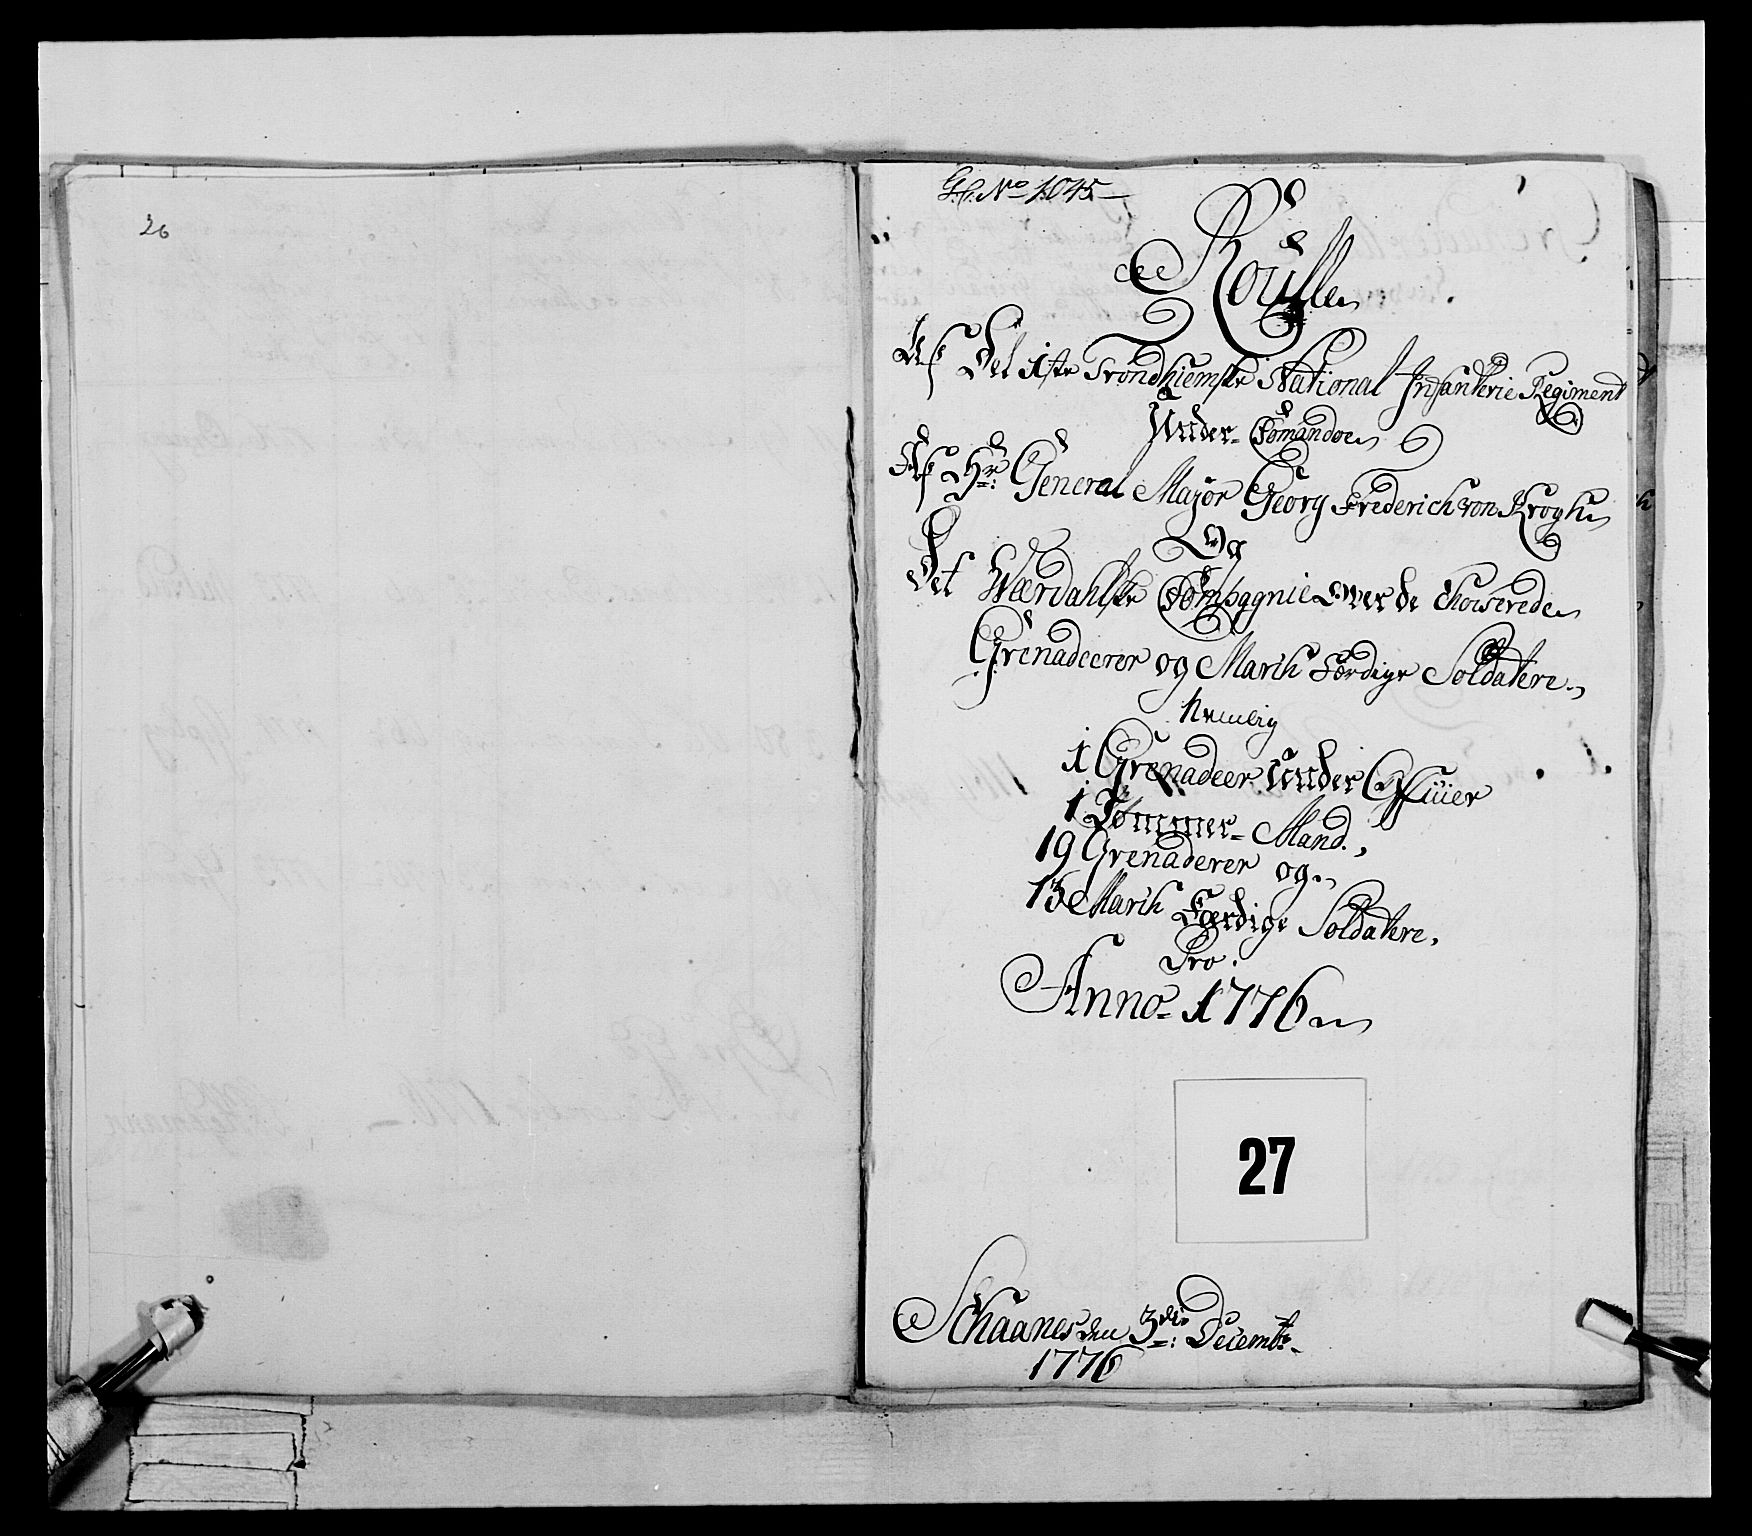 26
G.C. No 1045
Roulle
Af Det 1ste Trondhiemske National Infanterie Regiment
Under Comando
Af Hr: General Major Georg Frederich von Krogh
Og
Det Værdahlske Compagnie over de Choiserede
Grenadeerer og Marsh Færdige Soldatere
Nemlig
1 Grenadeer Under Officier
1 Tømmer-Mand.
19 Grenaderer og
13 Marsh Færdige Soldatere.
Pro.
Anno 1776
27
Schaanes den 3die Decembr.
1776